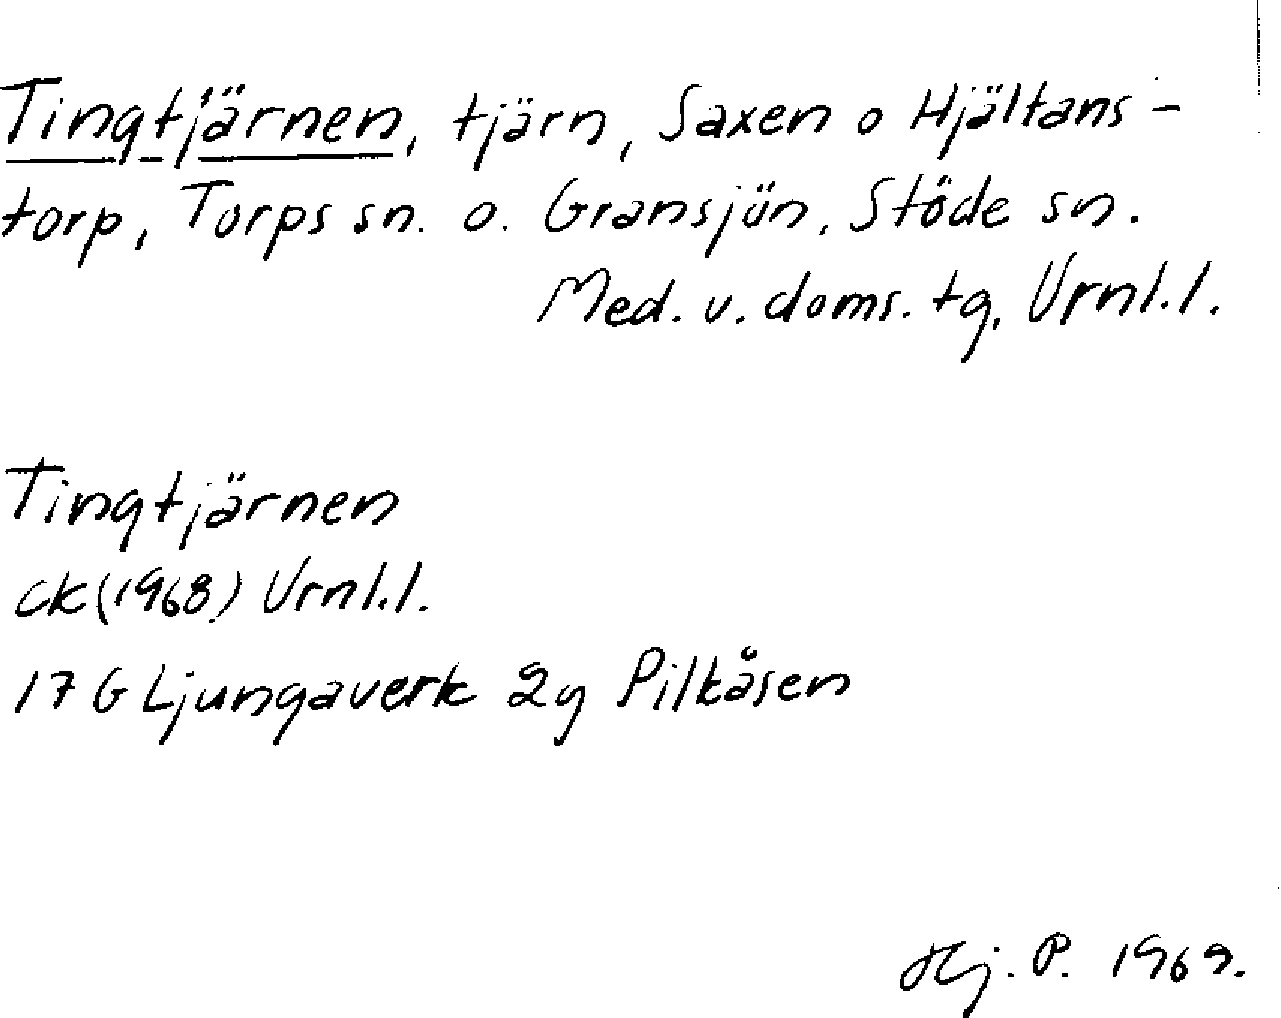 Tingtjärnen, tjärn, Saxen o Hjältans-
torp, Torps sn. o. Gransjön, Stöde sn.
Med. v. doms. tg, Vrnl.l.
Tingtjärnen
ck (1968) Vrnl.l.
17 G Ljungaverk 2g Pilkåsen
Hj. P. 1969.